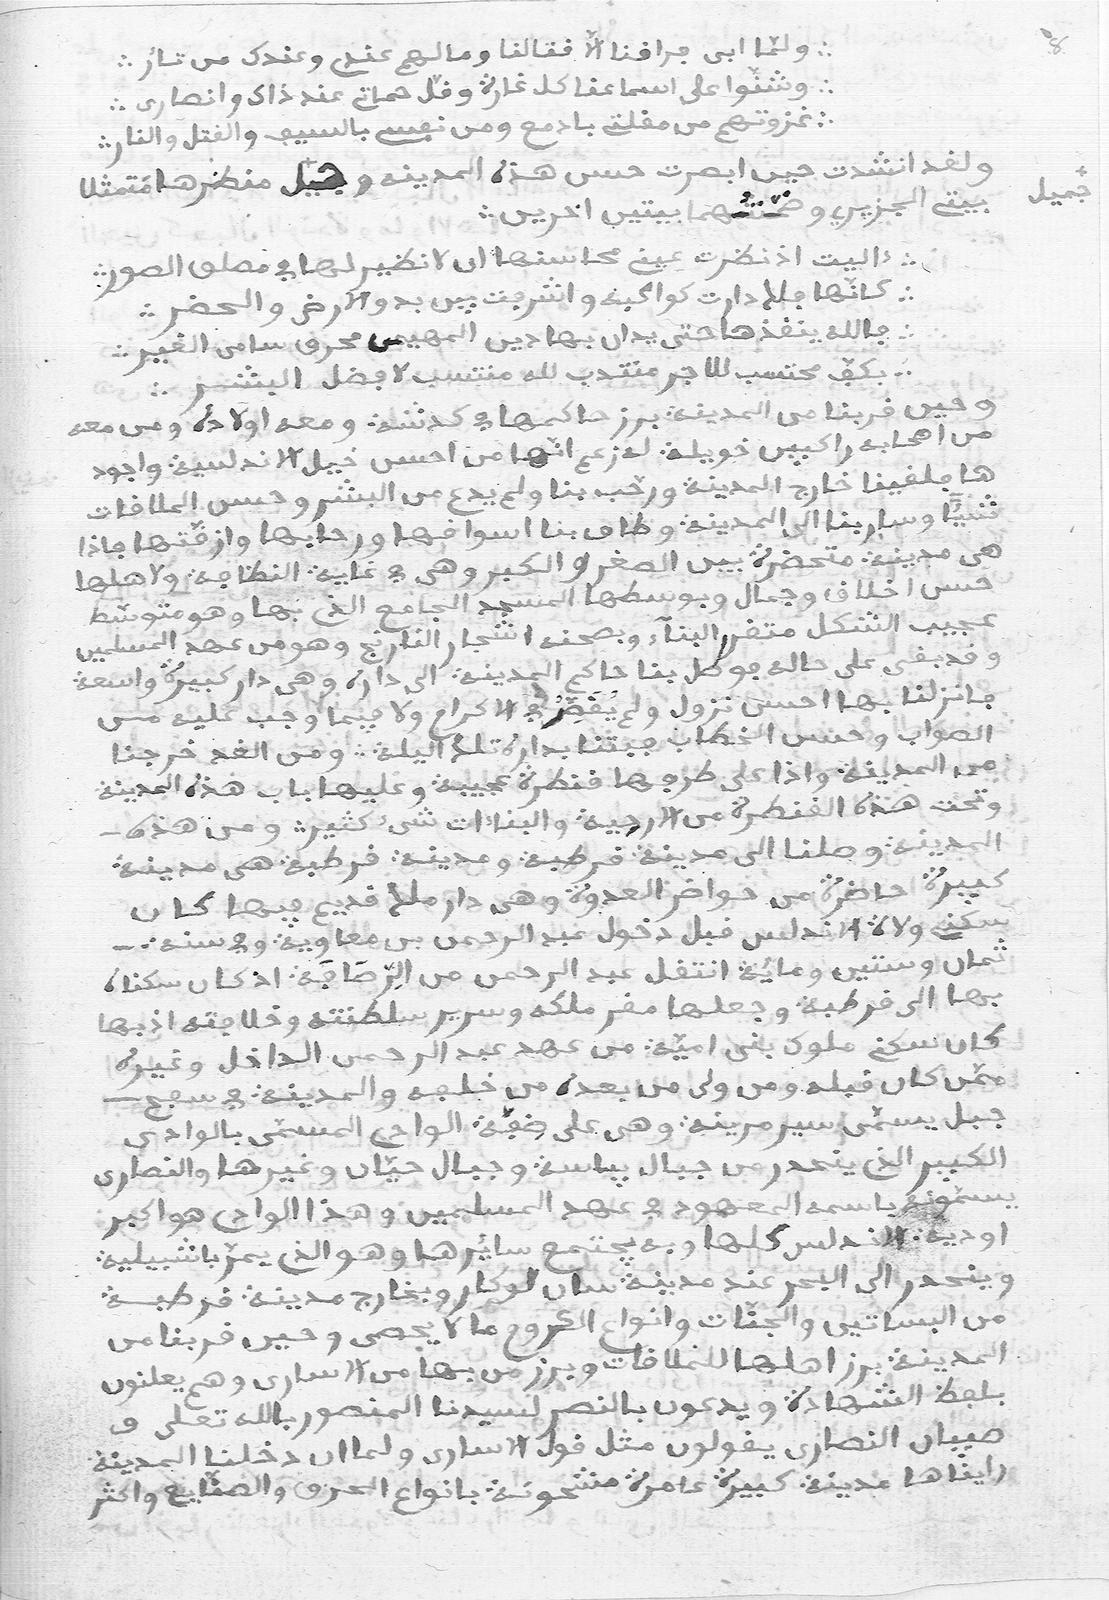 ولمّا ابى فرافنا الا فتالنا ومالهم عندي وعندك من ثار
وشنّوا على اسماعنا كل غارة وفلّ حماتي عند ذاك وانصارى
غزوتهم من مفلتي بادمع ومن نفسي بالسيف والفتل والنار
ولفد انشدت حين ابصرت حسن هذه المدينة و منظرها متمثلا
جميل
بيتي الجزيري و بيتين اخرين
ءاليت اذ نظرت عيني محاسنها ان لا نظير لها في مصلى الصور
كانّها فلك دارت كواكبه واشرفت بين بدو الارض والحضر
فالله ينفذها حتى يدان بها دين المهيمن محرى سامى الغير
بكفّ محتسب للاجر منتدب لله منتسب لافضل البشر
وحين فربنا من المدينة برز حاكمها في كدشه ومعه اولاده ومن معه
من اصحابه راكبين خويله له زعم انّها من احسن خيل الاندلسية واجود
ها فلفينا خارج المدينة ورحّب بنا ولم يدع من البشر وحسن الملافات
شيئا وسار بنا الى المدينة وطاف بنا اسوافها ورحابها وازفتها فاذا
هى مدينة متحضرة بين الصغر والكبر وهى في غاية النظافة ولاهلها
حسن اخلاق وجمال وبوسطها المسجد الجامع الذي بها وهو متوسّط
عجيب الشكل متفن البناء وبصحنه اشجار النارنج وهو من عهد المسلمين
وفد بفى على حاله فوصل بنا حاكم المدينة الى داره وهى دار كبيرة واسعة
فانزلنا بها احسن نزول ولم يُفصّر في الاكرام ولا فيما وجب عليه من
الصواب وحسن الخطاب فبتنا بداره تلك اليلة ومن الغد خرجنا
من المدينة واذا على طرفها فنطرة عجيبة وعليها باب هذه المدينة
وتحت هذه الفنطرة من الارحية والبناءات شىء كثير ومن هذه
المدينة وصلنا الى مدينة فرطبة ومدينة فرطبة هى مدينة
كبيرة حاضرة من حواضر العدوة وهى دار ملك فديم فيها كان
سكنى ولاة الاندلس فبل دخول عبد الرحمن بن معاوية وفي سنة
ثمان وستين ومائة انتفل عبد الرحمن من الرّصافة اذ كان سكناه
بها الى فرطبة وجعلها مفر ملكه وسرير سلطنته وخلافته اذ بها
كان سكنى ملوك بنى اميّة من عهد عبد الرحمن الداخل وغيره
ممّن كان فبله ومن ولى من بعده من خلفه والمدينة في سفح
جبل يسمّى سير مرينة وهى على ضفّة الوادي المسمّى بالوادي
الكبير الذي ينحدر من جبال بياسة وجبال جيّان وغيرها والنصارى
يسمّونه باسمه المعهود في عهد المسلمين وهذا الوادي هو اكبر
اودية الاندلس كلها وبه يجتمع سائرها وهو الذي يمرّ باشبيلية
وينحدر الى البحر عند مدينة سان لوكار وبخارج مدينة فرطبة
من البساتين والجنّات وانواع الكروم ما لا يحصى وحين فربنا من
المدينة برز اهلها للملافات وبرز من بها من الاسارى وهم يعلنون
بلفظ الشهادة ويدعون بالنصر لسيدنا المنصور بالله تعلى و
صبيان النصارى يفولون مثل فول الاسارى ولما ان دخلنا المدينة
رايناها مدينة كبيرة عامرة مشحونة بانواع الحرف والصنّايع واكثر